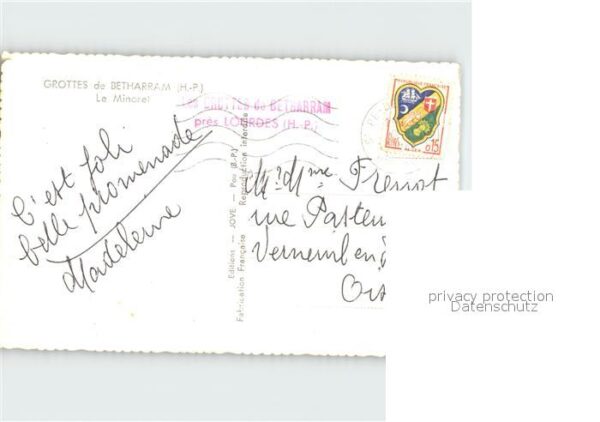 GROTTES de BETHARRAM (H.-P.)
Le Minaret
Les GROTTES de BETHARRAM
près LOURDES (H.-P.)
0,15
C'est joli
belle promenade
Madeleine
Editions — JOVE — Pau (B.-P.)
Fabrication Française
Reproduction interdite
Mr Mme
rue Pasteu
Verneuil en
Ois
privacy protection
Datenschutz